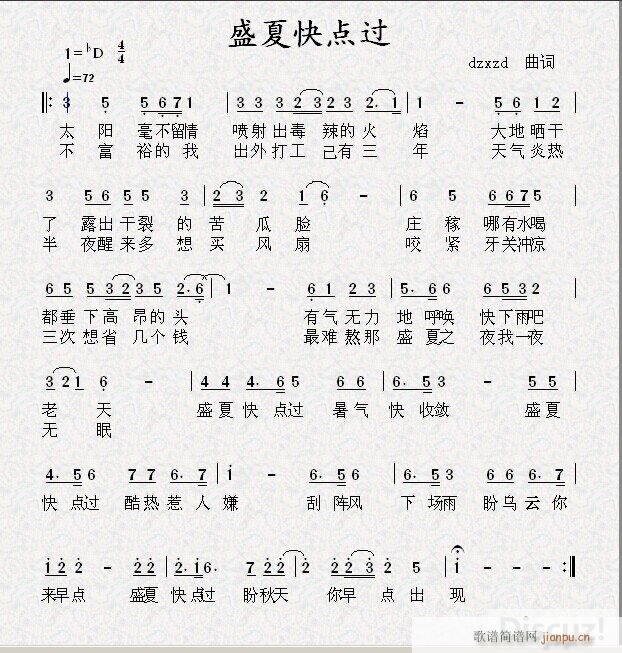 盛夏快点过
1=ᵇD 4/4
♩=72
dzxzd 曲词
3 5 5 6 7 1 | 3 3 3 2 3 2 3 2. 1 | 1 - 5 6 1 2 |
太 阳 毫不留情 喷射出毒 辣的火 焰 大地晒干
不 富 裕的我 出外打工 己有三 年 天气炎热
3 5 6 5 5 3 | 2 3 2 1 6 - | 6 5 6 6 7 5 |
了 露出干裂 的 苦 瓜 脸 庄 稼 哪有水喝
半 夜醒来多 想 买 风 扇 咬 紧 牙关冲凉
6 5 5 3 2 3 5 2. 6 | 1 - 6 1 2 3 | 5. 6 6 6 5 3 2 |
都垂下高 昂的头 有气无力 地 呼唤 快下雨吧
三次想省 几个钱 最难熬那 盛 夏之 夜我一夜
3 2 1 6 - | 4 4 4. 6 5 6 6 | 6. 5 3 - 5 5 |
老 天 盛夏快 点过 暑气 快 收敛 盛夏
无 眠
4. 5 6 7 7 6. 7 | i - 6. 5 6 | 6. 5 3 6 6 6. 7 |
快 点过 酷热惹 人 嫌 刮 阵风 下 场雨 盼乌云你
i 2 2 - 2 2 | 2. i 6. 7 2 2 | 2 2 3 2 5 | i - - - :||
来早点 盛夏 快 点过 盼秋天 你早 点 出 现
Discuz!
歌谱简谱网 jianpu.cn